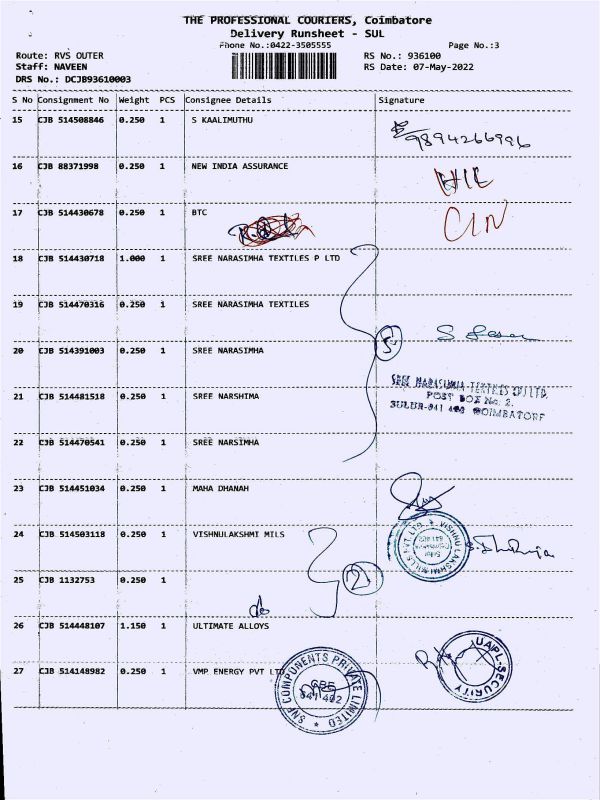 THE PROFESSIONAL COURIERS, Coimbatore
Delivery Runsheet - SUL
Phone No.:0422-3505555
Page No.:3
Route: RVS OUTER
RS No.: 936100
Staff: NAVEEN
RS Date: 07-May-2022
DRS No.: DCJB93610003
S No Consignment No Weight PCS Consignee Details Signature
15 CJB 514508846 0.250 1 S KAALIMUTHU
9894266996
16 CJB 88371998 0.250 1 NEW INDIA ASSURANCE
17 CJB 514430678 0.250 1 BTC
18 CJB 514430718 1.000 1 SREE NARASIMHA TEXTILES P LTD
19 CJB 514470316 0.250 1 SREE NARASIMHA TEXTILES
20 CJB 514391003 0.250 1 SREE NARASIMHA
5
21 CJB 514481518 0.250 1 SREE NARSHIMA
SREE NARASIMHA TEXTILES (P) LTD.
POST BOX No. 2.
SULUR-641 402 COIMBATORE
22 CJB 514470541 0.250 1 SREE NARSIMHA
23 CJB 514451034 0.250 1 MAHA DHANAH
24 CJB 514503118 0.250 1 VISHNULAKSHMI MILS
VISHNU LAKSHMI MILLS PVT LTD.
25 CJB 1132753 0.250 1
2
26 CJB 514448107 1.150 1 ULTIMATE ALLOYS
UAPL-SECURITY
27 CJB 514148982 0.250 1 VMP ENERGY PVT LTD
SNF COMPONENTS PRIVATE LIMITED
CBE
641 402